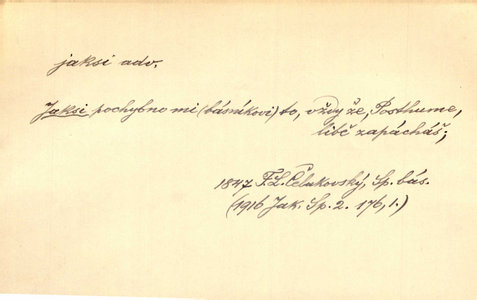 jaksi adv.
Jaksi pochybno mi (básníkovi) to, vždy že, Posthume,
libě zapácháš;
1847 F. L. Čelakovský, Sp. bás.
(1916 Jak. Sp. 2. 176, 1.)